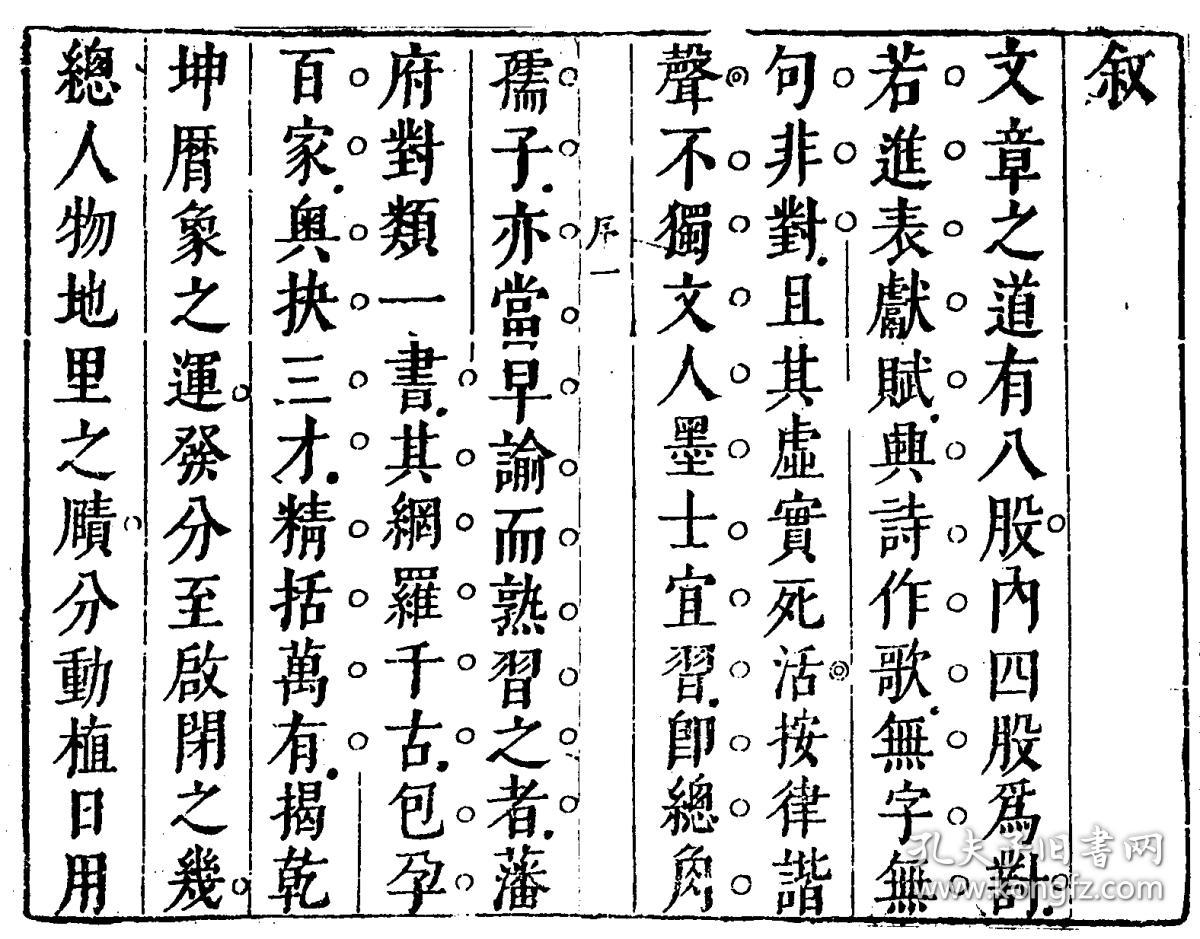 叙
文章之道有八股內四股爲對
若進表獻賦興詩作歌無字無
句非對且其虛實死活按律諧
聲不獨文人墨士宜習卽總角
序一
孺子亦當早諭而熟習之者藩
府對類一書其網羅千古包孕
百家奥抉三才精括萬有揭乾
坤曆象之運發分至啟閉之幾
總人物地里之賾分動植日用
孔夫子旧书网
www.kongfz.com